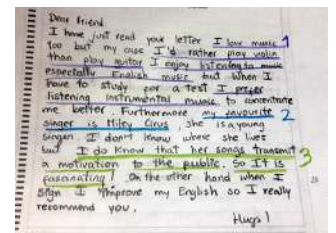 Dear Friend.
I have just read your letter I love music 1
too but my case I'd rather play violin
than play guitar I enjoy listening to music
especially English music but when I
have to study for a test I prefer
listening instrumental music to concentrate
me better. Furthermore my favourite 2
singer is Miley Cirus, she is a young
singer I don't know where she lives
but I do know that her songs transmit 3
a motivation to the public. So It is
fascinating! On the other hand when I
sign I improve my English so I really
recommend you.
Hugs!